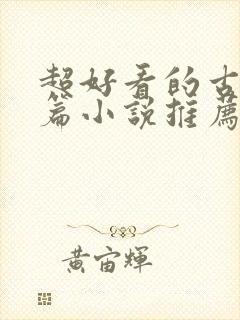 超好看的古
篇小說推薦
黃宙輝